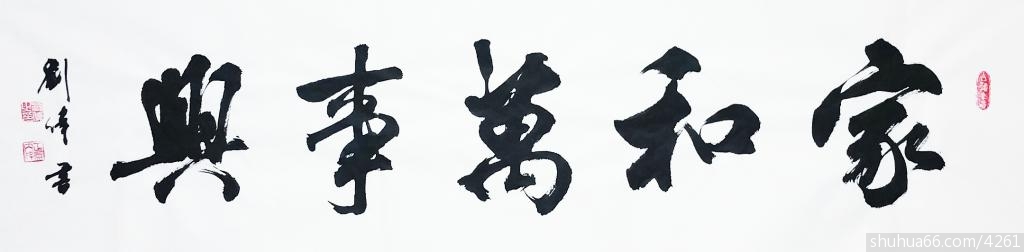 家和萬事興
劉峰書
shuhua66.com/4261